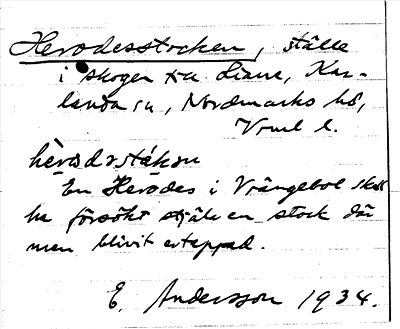 Herodesstocken, ställe
i skogen till Liane, Kar-
landa sn, Nordmarks hd,
Vrml l.
hèrodəstákən
En Herodes i Vrångebol skall
ha försökt stjäla en stock där
men blivit ertappad.
E. Andersson 1934.